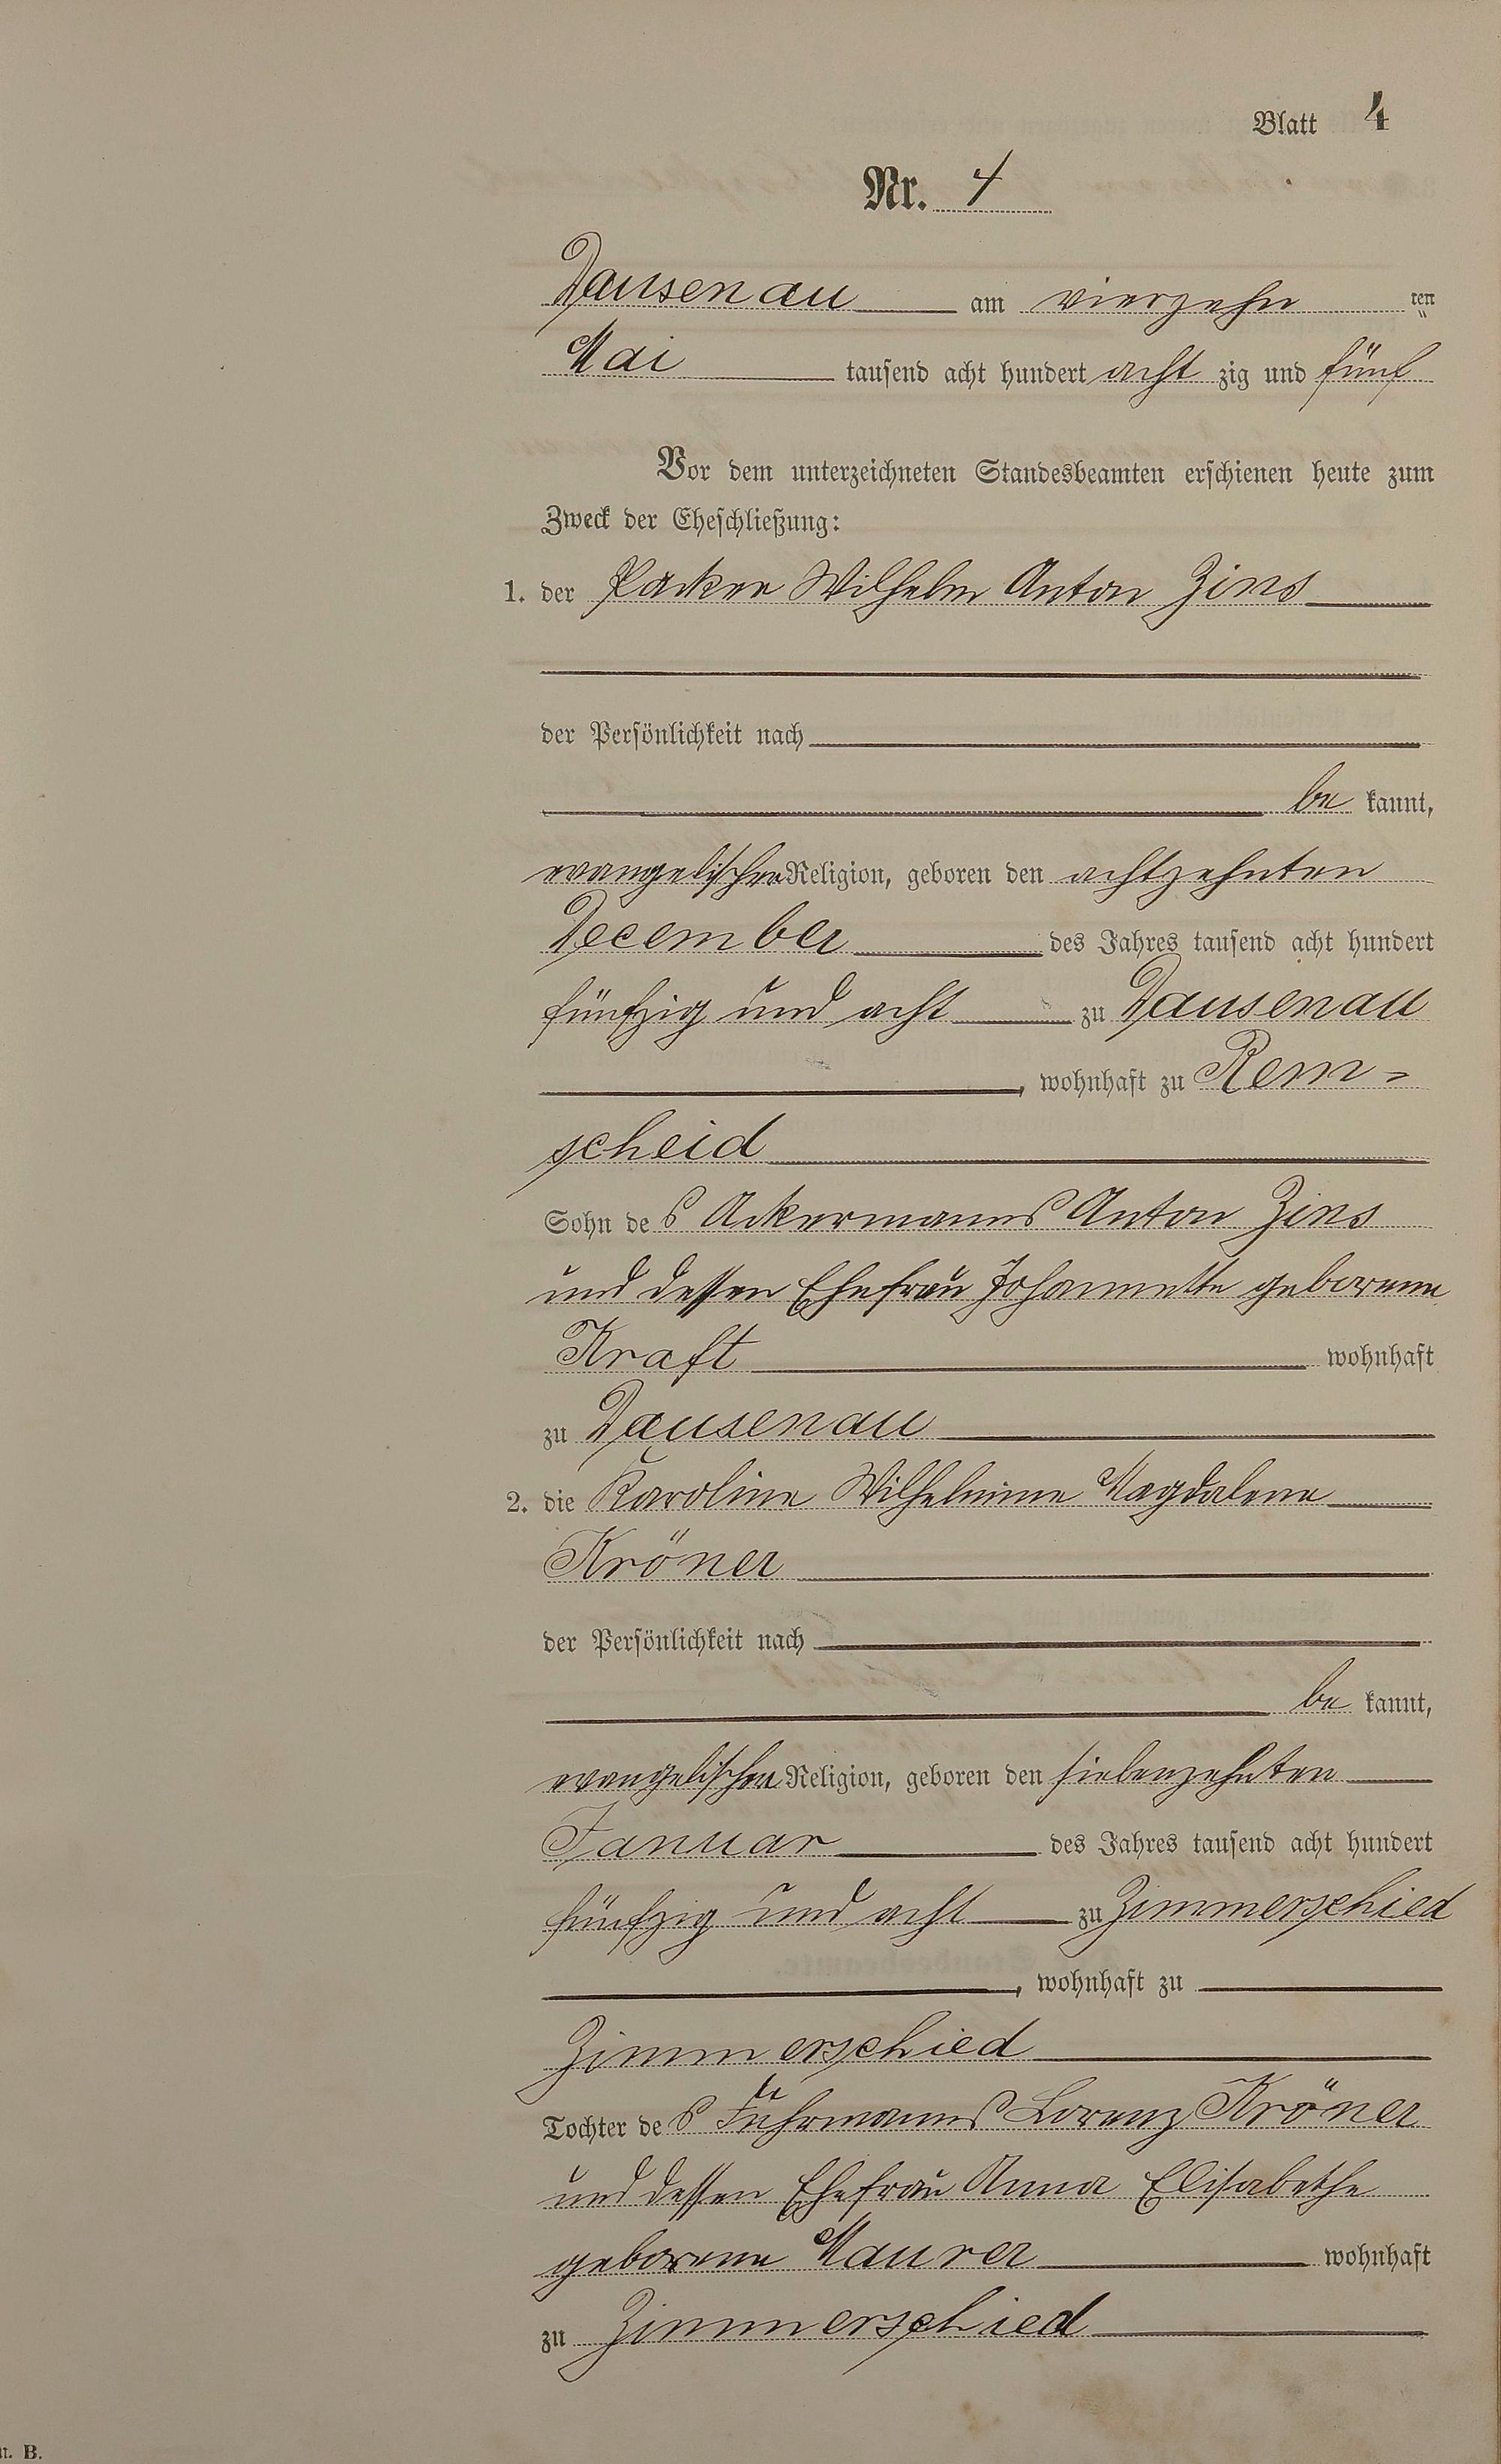 Blatt 4
Nr. 4
Dausenau am vierzehn ten
Mai tausend acht hundert acht zig und fünf
Vor dem unterzeichneten Standesbeamten erschienen heute zum
Zweck der Eheschließung:
1. der Packer Wilhelm Anton Zins
der Persönlichkeit nach
be kannt,
evangelischer Religion, geboren den achtzehnten
December des Jahres tausend acht hundert
fünfzig und acht zu Dausenau
, wohnhaft zu Rem-
scheid
Sohn de s Ackermanns Anton Zins
und dessen Ehefrau Johannette geborene
Kraft wohnhaft
zu Dausenau
2. die Karoline Wilhelmine Magdalene
Kröner
der Persönlichkeit nach
be kannt,
evangelischer Religion, geboren den siebenzehnten
Januar des Jahres tausend acht hundert
fünfzig und acht zu Zimmerschied
, wohnhaft zu
Zimmerschied
Tochter de s Fuhrmanns Lorenz Kröner
und dessen Ehefrau Anna Elisabethe
geborene Maurer wohnhaft
zu Zimmerschied
B.